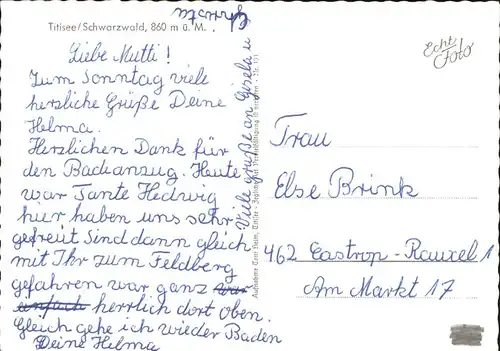 Titisee/Schwarzwald, 860 m ü. M.
Liebe Mutti!
Zum Sonntag viele
herzliche Grüße Deine
Helma.
Herzlichen Dank für
den Badeanzug. Heute
war Tante Hedwig
hier haben uns sehr
gefreut Sind dann gleich
mit Ihr zum Feldberg
gefahren war ganz war
einfach herrlich dort oben.
Gleich gehe ich wieder Baden
Deine Helma
Viele grüße an Gisela u
Echt
Foto
Frau
Else Brink
462 Castrop-Rauxel 1
Am Markt 17